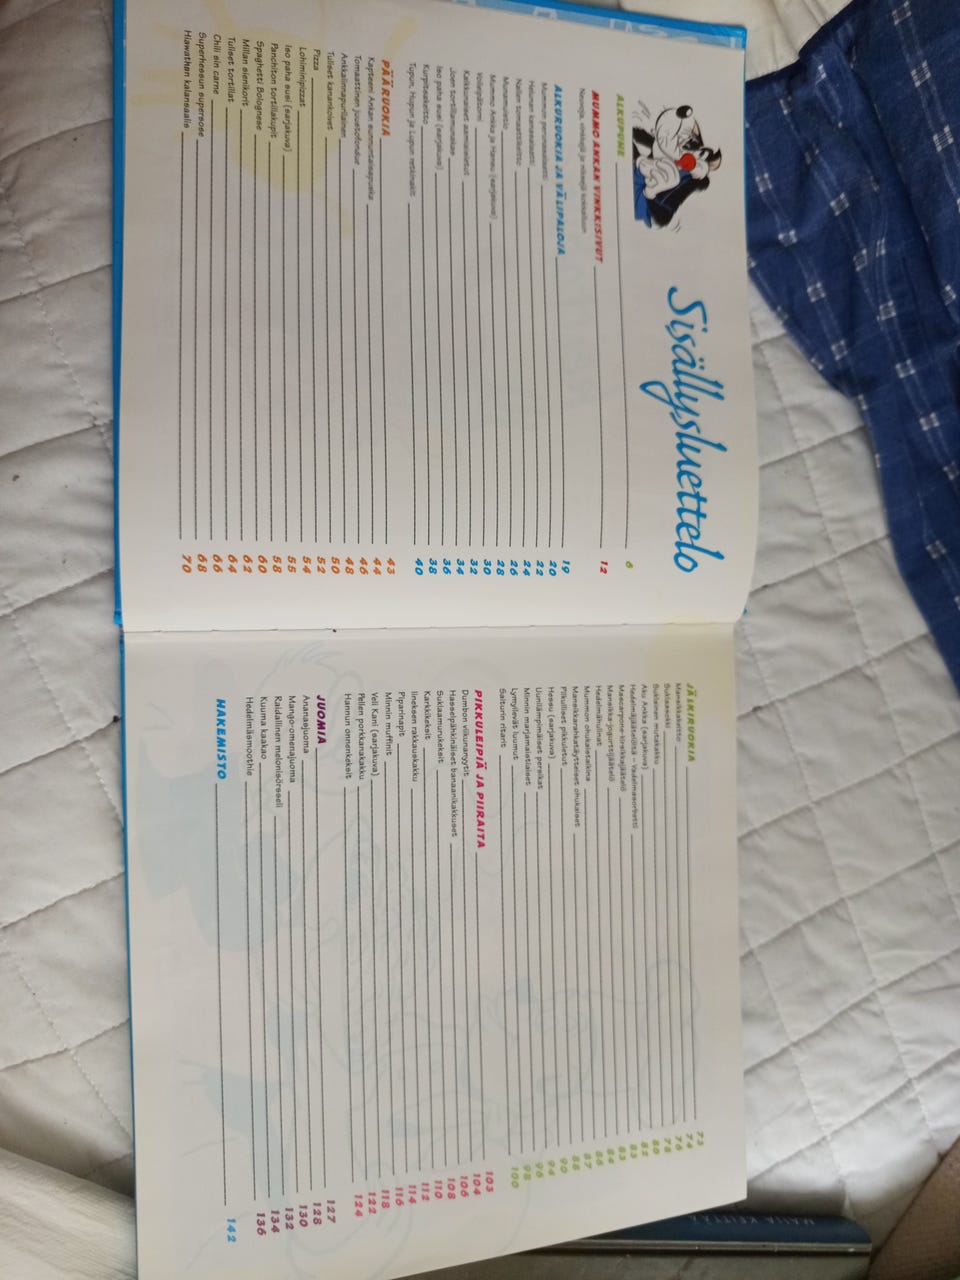 Sisällysluettelo
ALKUPUHE 6
MUMMO ANKAN VINKKISIVUT 12
Neuvoja, vinkkejä ja niksejä kokkailuun
ALKURUOKIA JA VÄLIPALOJA 19
Mummon perunasalaatti 20
Helunan kanasalaatti 22
Nallen tomaattikeitto 24
26
Mummo Ankka ja Hansu (sarjakuva) 28
Voileipätorni 30
Kaikkinaiset aamiaisletut 32
Joen tortillamunakas 34
Iso paha susi (sarjakuva) 36
Kurpitsakeitto 38
Tupun, Hupun ja Lupun retkinakit 40
PÄÄRUOKIA 43
Kapteeni Ankan 44
Tomaattinen juustofondue 46
Ankkalinnapurilainen 48
Tuliset kanankoivet 50
Pizza 52
Lohiminipizzat 54
Iso paha susi (sarjakuva) 55
Panchiton tortillakupit 58
Spaghetti Bolognese 60
Millan sienikorit 62
Tuliset tortillat 64
Chili sin carne 66
Superhessun supersose 68
Hiawathan kalansaalis 70
JÄLKIRUOKIA 73
Mansikkakeitto 74
Suklaasokki 76
Suklainen mutakakku 78
Aku Ankka (sarjakuva) 80
Hedelmäjäätelöitä – Vadelmasorbetti 82
Mascarpone-kirsikkajäätelö 83
Mansikka-jogurttijäätelö 84
Hedelmähulinat 86
Mummon ohukaistaikina 87
Mansikkarahkatäytteiset ohukaiset 88
Pikulliset pikkuletut 90
Hessu (sarjakuva) 94
Uunilämpimäiset persikat 96
Minnin marjamaistiaiset 98
Lymyilevät luumut 100
Saiturin ritarit
PIKKULEIPIÄ JA PIIRAITA 103
Dumbon viikunanyytit 104
Hasselpähkinäiset banaanikakkuset 106
Suklaamurukeksit 108
Karkkikeksit 110
Iineksen rakkauskakku 112
Piparinapit 114
Minnin muffinit 116
Veli Kani (sarjakuva) 118
Pellen porkkanakakku 122
Hannun onnenkeksit 124
JUOMIA 127
Ananasjuoma 128
Mango-omenajuoma 130
Raidallinen melonisörsseli 132
Kuuma kaakao 134
Hedelmäsmoothie 136
HAKEMISTO 142